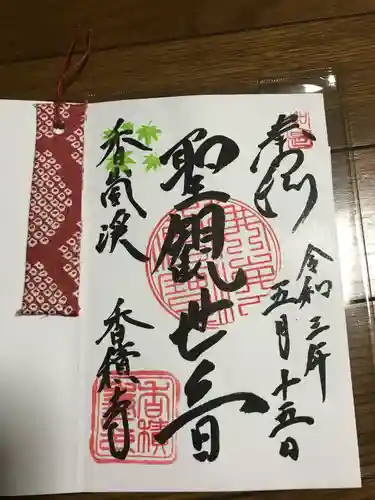 奉拝
令和三年
五月十五日
聖観世音
香嵐渓
香積寺